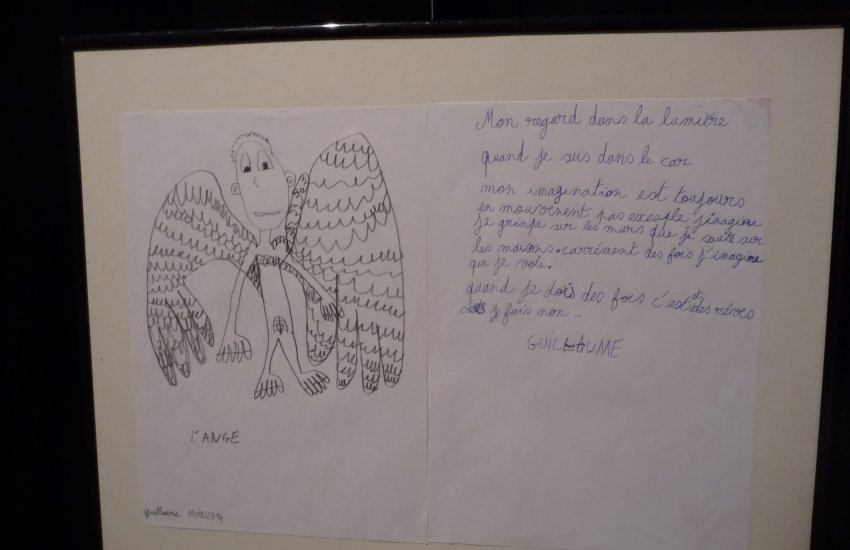 L'ANGE
guillaume 11/08/2014
Mon regard dans la lumière
quand je suis dans le car
mon imagination est toujours
en mouvement pas exemple j'imagine
je grimpe sur les murs que je saute sur
les maisons. carrément des fois j'imagine
que je vole.
quand je dors des fois c'est des rêves
et fois non -
GUILLAUME